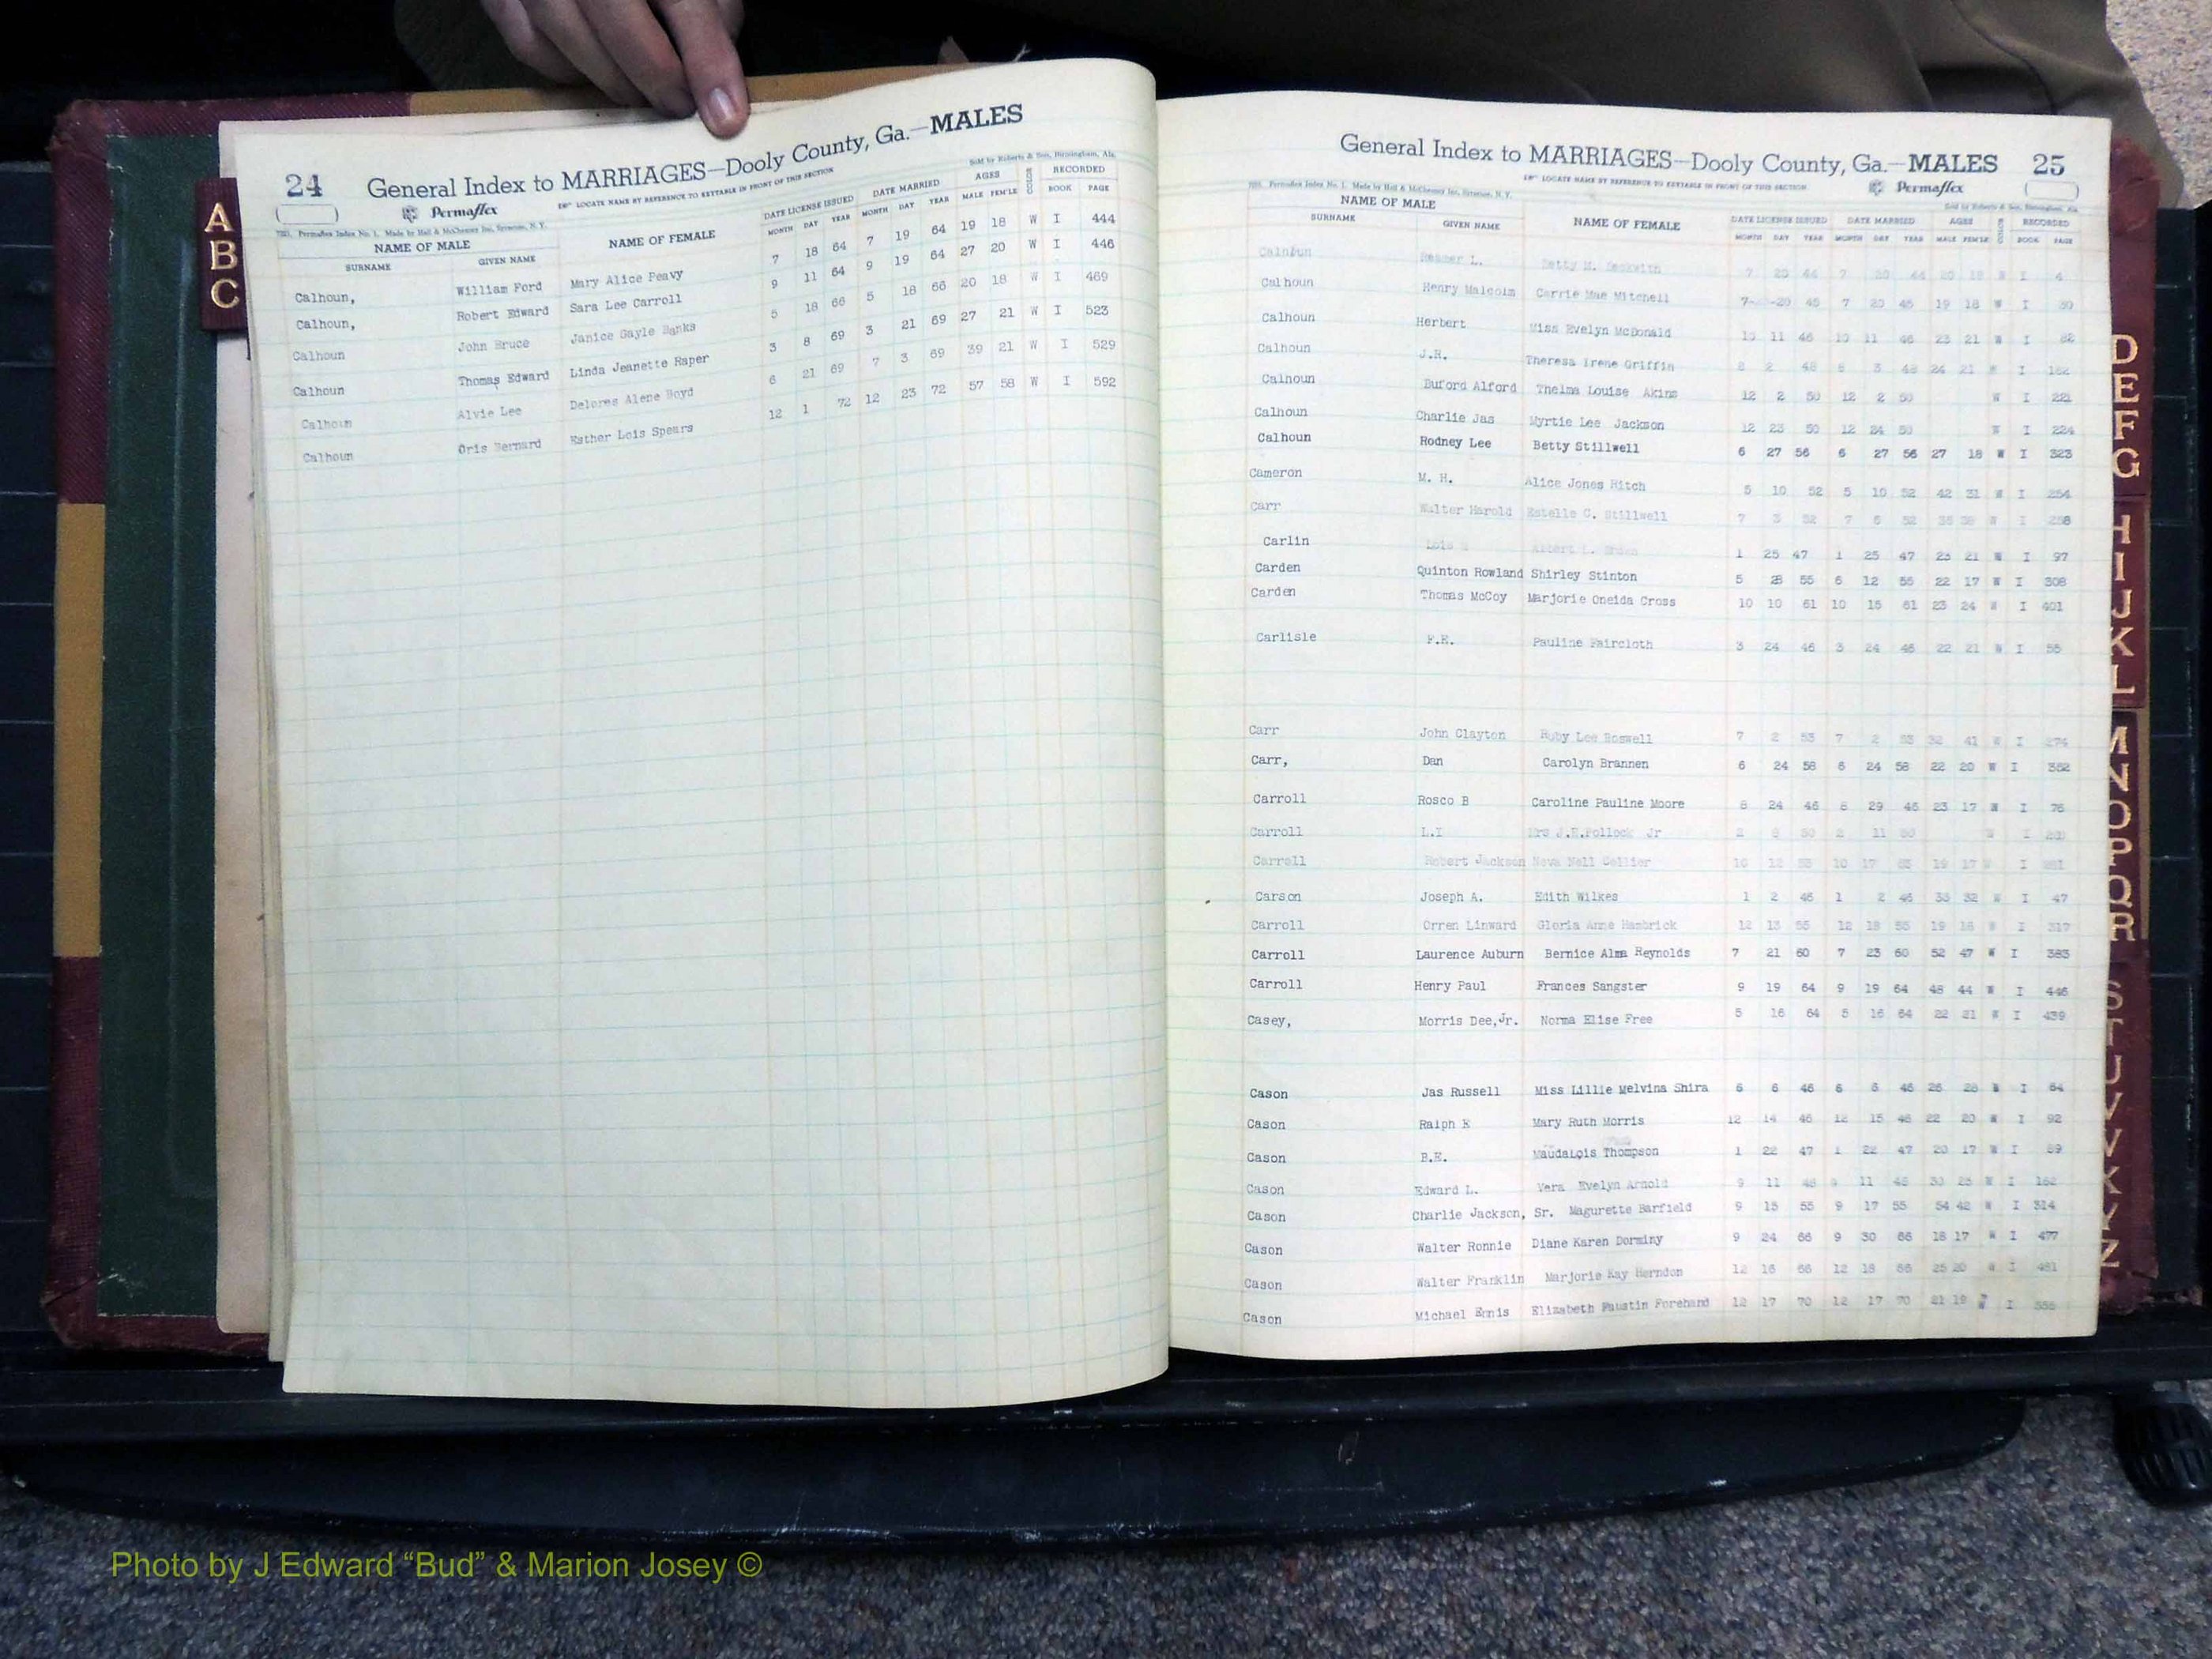 24
General Index to MARRIAGES—Dooly County, Ga.—MALES
Permaflex
LOCATE NAME BY REFERENCE TO KEYTABLE IN FRONT OF THIS SECTION
Sold by Roberts & Son, Birmingham, Ala.
Permaflex Index No. 1. Made by Hall & McChesney Inc, Syracuse, N. Y.
NAME OF MALE NAME OF FEMALE DATE LICENSE ISSUED DATE MARRIED AGES COLOR RECORDED
SURNAME GIVEN NAME MONTH DAY YEAR MONTH DAY YEAR MALE FEM'LE BOOK PAGE
Calhoun, William Ford Mary Alice Peavy 7 18 64 7 19 64 19 18 W I 444
Calhoun, Robert Edward Sara Lee Carroll 9 11 64 9 19 64 27 20 W I 446
Calhoun John Bruce Janice Gayle Banks 5 18 66 5 18 66 20 18 W I 469
Calhoun Thomas Edward Linda Jeanette Raper 3 8 69 3 21 69 27 21 W I 523
Calhoun Alvie Lee Delores Alene Boyd 6 21 69 7 3 69 39 21 W I 529
Calhoun Oris Bernard Esther Lois Spears 12 1 72 12 23 72 57 58 W I 592
A
B
C
General Index to MARRIAGES—Dooly County, Ga.—MALES 25
LOCATE NAME BY REFERENCE TO KEYTABLE IN FRONT OF THIS SECTION
Permaflex
Permaflex Index No. 1. Made by Hall & McChesney Inc, Syracuse, N. Y.
Sold by Roberts & Son, Birmingham, Ala.
NAME OF MALE NAME OF FEMALE DATE LICENSE ISSUED DATE MARRIED AGES COLOR RECORDED
SURNAME GIVEN NAME MONTH DAY YEAR MONTH DAY YEAR MALE FEM'LE BOOK PAGE
Calhoun L. Betty M. 7 7 W I 4
Calhoun Henry Malcolm Carrie Mae Mitchell 7- -20 45 7 20 45 19 18 W I 30
Calhoun Herbert Miss Evelyn McDonald 10 11 46 10 11 46 23 21 W I 82
Calhoun J.R. Theresa Irene Griffin 8 2 48 8 3 48 24 21 W I 162
Calhoun Buford Alford Thelma Louise Akins 12 2 50 12 2 50 W I 221
Calhoun Charlie Jas Myrtie Lee Jackson 12 23 50 12 24 50 W I 224
Calhoun Rodney Lee Betty Stillwell 6 27 56 6 27 56 27 18 W I 323
Cameron M. H. Alice Jones Hitch 5 10 52 5 10 52 42 31 W I 254
Carr Walter Harold Estelle C. Stillwell 7 3 52 7 6 52 W I 258
Carlin 1 25 47 1 25 47 23 21 W I 97
Carden Quinton Rowland Shirley Stinton 5 28 55 6 12 55 22 17 W I 308
Carden Thomas McCoy Marjorie Oneida Cross 10 10 61 10 15 61 23 24 W I 401
Carlisle F.E. Pauline Faircloth 3 24 46 3 24 46 22 21 W I 55
Carr John Clayton Ruby Lee Boswell 7 2 53 7 2 53 32 41 W I 274
Carr, Dan Carolyn Brannen 6 24 58 6 24 58 22 20 W I 352
Carroll Rosco B Caroline Pauline Moore 8 24 46 8 29 46 23 17 W I 76
Carroll L.I Mrs J.E.Pollock Jr 2 50 2 11 50 W I
Carroll Robert Jackson Neva Nell Collier 10 12 10 17 19 17 W I
Carson Joseph A. Edith Wilkes 1 2 46 1 2 46 35 32 W I 47
Carroll Orren Linward Gloria Anne Hambrick 12 13 55 12 18 55 19 18 W I 317
Carroll Laurence Auburn Bernice Alma Reynolds 7 21 60 7 23 60 52 47 W I 383
Carroll Henry Paul Frances Sangster 9 19 64 9 19 64 48 44 W I 446
Casey, Morris Dee,Jr. Norma Elise Free 5 16 64 5 16 64 22 21 W I 439
Cason Jas Russell Miss Lillie Melvina Shira 6 6 46 6 6 46 26 28 W I 64
Cason Ralph E Mary Ruth Morris 12 14 46 12 15 46 22 20 W I 92
Cason B.E. MaudaLois Thompson 1 22 47 1 22 47 20 17 W I
Cason Edward L. Vera Evelyn Arnold 9 11 48 9 11 48 30 25 W I 162
Cason Charlie Jackson, Sr. Magurette Barfield 9 15 55 9 17 55 54 42 W I 314
Cason Walter Ronnie Diane Karen Dorminy 9 24 66 9 30 66 18 17 W I 477
Cason Walter Franklin Marjorie Kay Herndon 12 16 66 12 18 66 25 20 W I 481
Cason Michael Ennis Elizabeth Faustin Forehand 12 17 70 12 17 70 21 19 W I
D
E
F
G
H
I
J
K
L
M
N
O
P
Q
R
S
T
U
V
W
X
Y
Z
Photo by J Edward “Bud” & Marion Josey ©